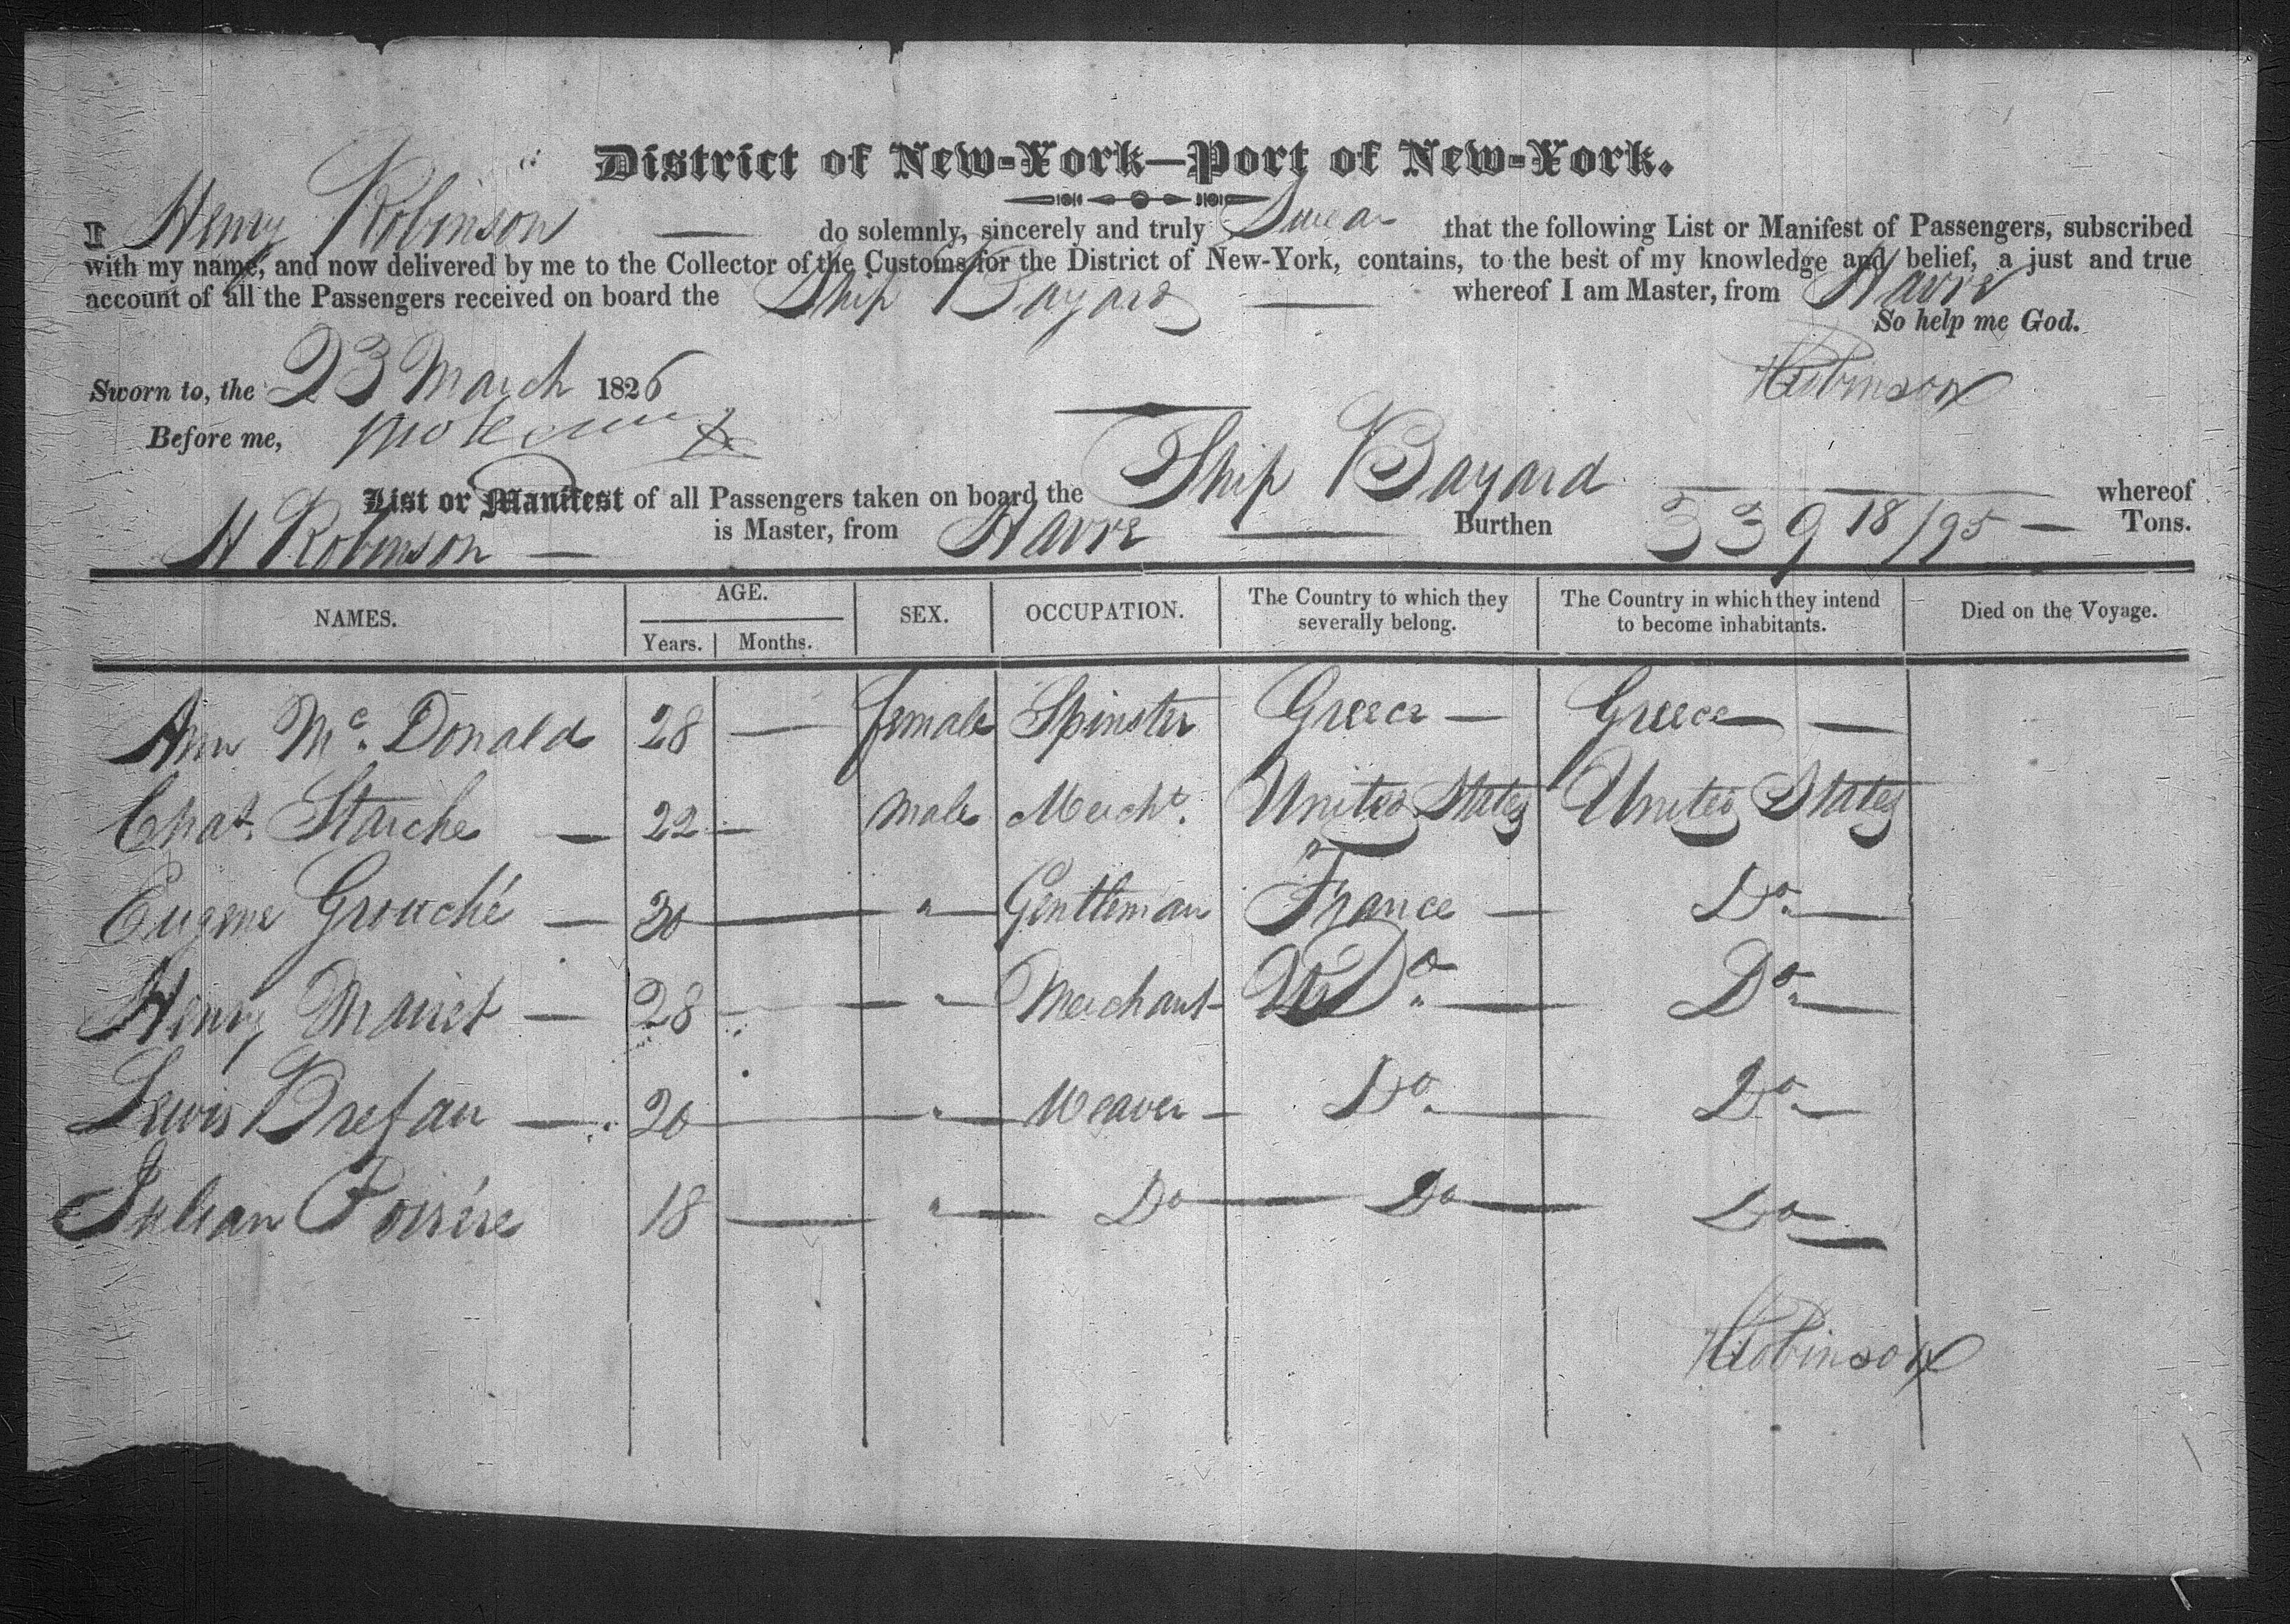 District of New-York—Port of New-York.
I Henry Robinson — do solemnly, sincerely and truly Swear that the following List or Manifest of Passengers, subscribed
with my name, and now delivered by me to the Collector of the Customs for the District of New-York, contains, to the best of my knowledge and belief, a just and true
account of all the Passengers received on board the Ship Bayard — whereof I am Master, from Havre
So help me God.
Sworn to, the 23 March 1826 HRobinson
Before me,
List or Manifest of all Passengers taken on board the Ship Bayard — whereof
H Robinson — is Master, from Havre — Burthen 339 18/95 — Tons.
NAMES. AGE. Years. Months. SEX. OCCUPATION. The Country to which they severally belong. The Country in which they intend to become inhabitants. Died on the Voyage.
Ann Mc. Donald 28 — female Spinster Greece — Greece —
Chas. Starche — 22 — male Mercht. United States United States
Eugene Grouché — 30 — " — Gentleman France — Do. —
Henry — 28 — " — Merchant — Do. — Do. —
Lewis Brefau — 20 — " — Weaver — Do. — Do. —
Julian Poirére 18 — " — Do — Do — Do —
HRobinson